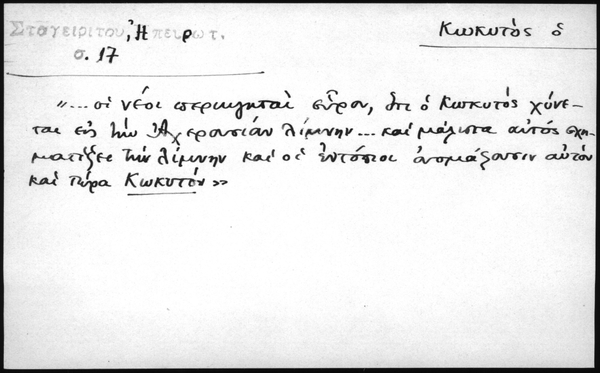 Σταγειρίτου, Ἠπειρωτ.
Κωκυτὸς ὁ
σ. 17
«... οἱ νέοι περιηγηταὶ εὗρον, ὅτι ὁ Κωκυτὸς χύνε-
ται εἰς τὴν Ἀχερουσίαν λίμνην... καὶ μάλιστα αὐτὸς σχη-
ματίζει τὴν λίμνην καὶ οἱ ἐντόπιοι ὀνομάζουσιν αὐτὸν
καὶ τώρα Κωκυτόν»